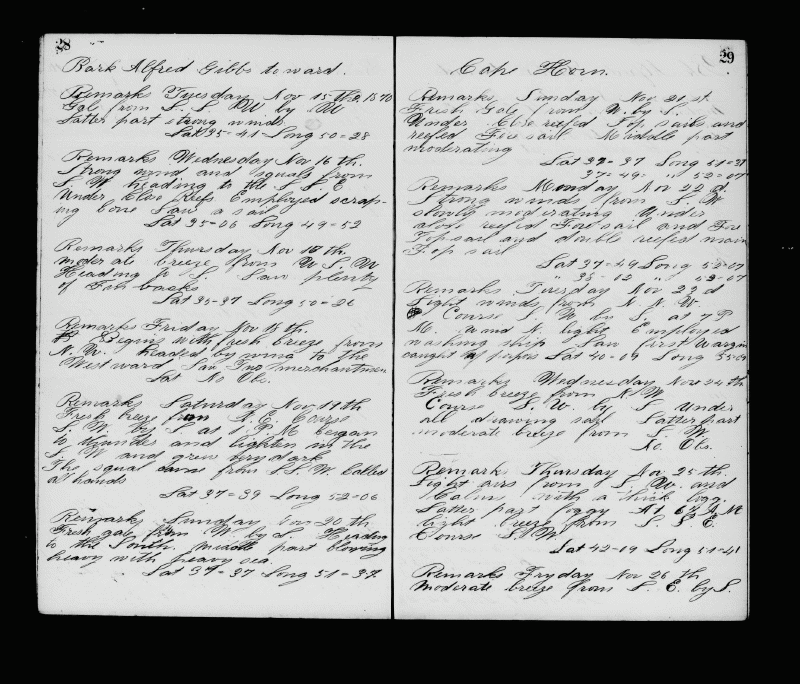 28
Bark Alfred Gibbs toward.
Remarks Tuesday Nov 15 th 1870
Gale from S. S W by W
Latter part strong winds
Lat 35=41 Long 50=28
Remarks Wednesday Nov 16 th.
Strong wind and squals from
S. W heading to the S. S. E
Under close Reefs Employed scrap-
ing bone Saw a sail
Lat 35=06 Long 49=52
Remarks Thursday Nov th.
moderate breeze from W S. W
Heading to S. Saw plenty
of Finbacks
Lat 35-37 Long 50=26
Remarks Friday Nov 18 th.
Begins with fresh breeze from
N. W. headed by wind to the
Westward Saw Two merchantmen
Lat No Obs.
Remarks Saturday Nov 19 th
Fresh breeze from N. E. Course
S. W. by S at P. M. began
to thunder and lighten in the
S. W and grew dark
The squal came from S.S.W. Called
all hands
Lat 37=39 Long 52=06
Remarks Sunday Nov 20 th.
Fresh gale from W by S. Heading
to the South. middle part blowing
heavy with heavy sea.
Lat 37=37 Long 51=37.
29
Cape Horn.
Remarks Sunday Nov 21 st.
Fresh Gale from W. by S.
Under Close reefed Top sails and
reefed Fore sail Middle part
moderating
Lat 37=37 Long 51=37
37=49= " " 52=07
Remarks Monday Nov 22 d
Strong winds from S. W
slowly moderating Under
close reefed Fore sail and Fore
Topsail and double reefed main
Top sail
Lat 37=49 Long 52=07
" 38=02 " " 52=07
Remarks Tuesday Nov 23 d
Light winds from N. N. W.
Course S. W by S. at 7 P
M. wind N. light Employed
washing ship Saw first
caught porpois Lat 40=09 Long 53=09
Remarks Wednesday Nov 24 th
Fresh breeze from N. W
Course S. W. by S Under
all drawing sail Latter part
moderate breeze from S. W.
No. Obs.
Remarks Thursday Nov 25 th.
Light airs from S. W. and
Calm with a thick fogg.
Latter part foggy At A M
light breeze from S. S E.
Course S. W.
Lat 42=09 Long 51=41
Remarks Fryday Nov 26 th
Moderate breeze from S. E. by S.